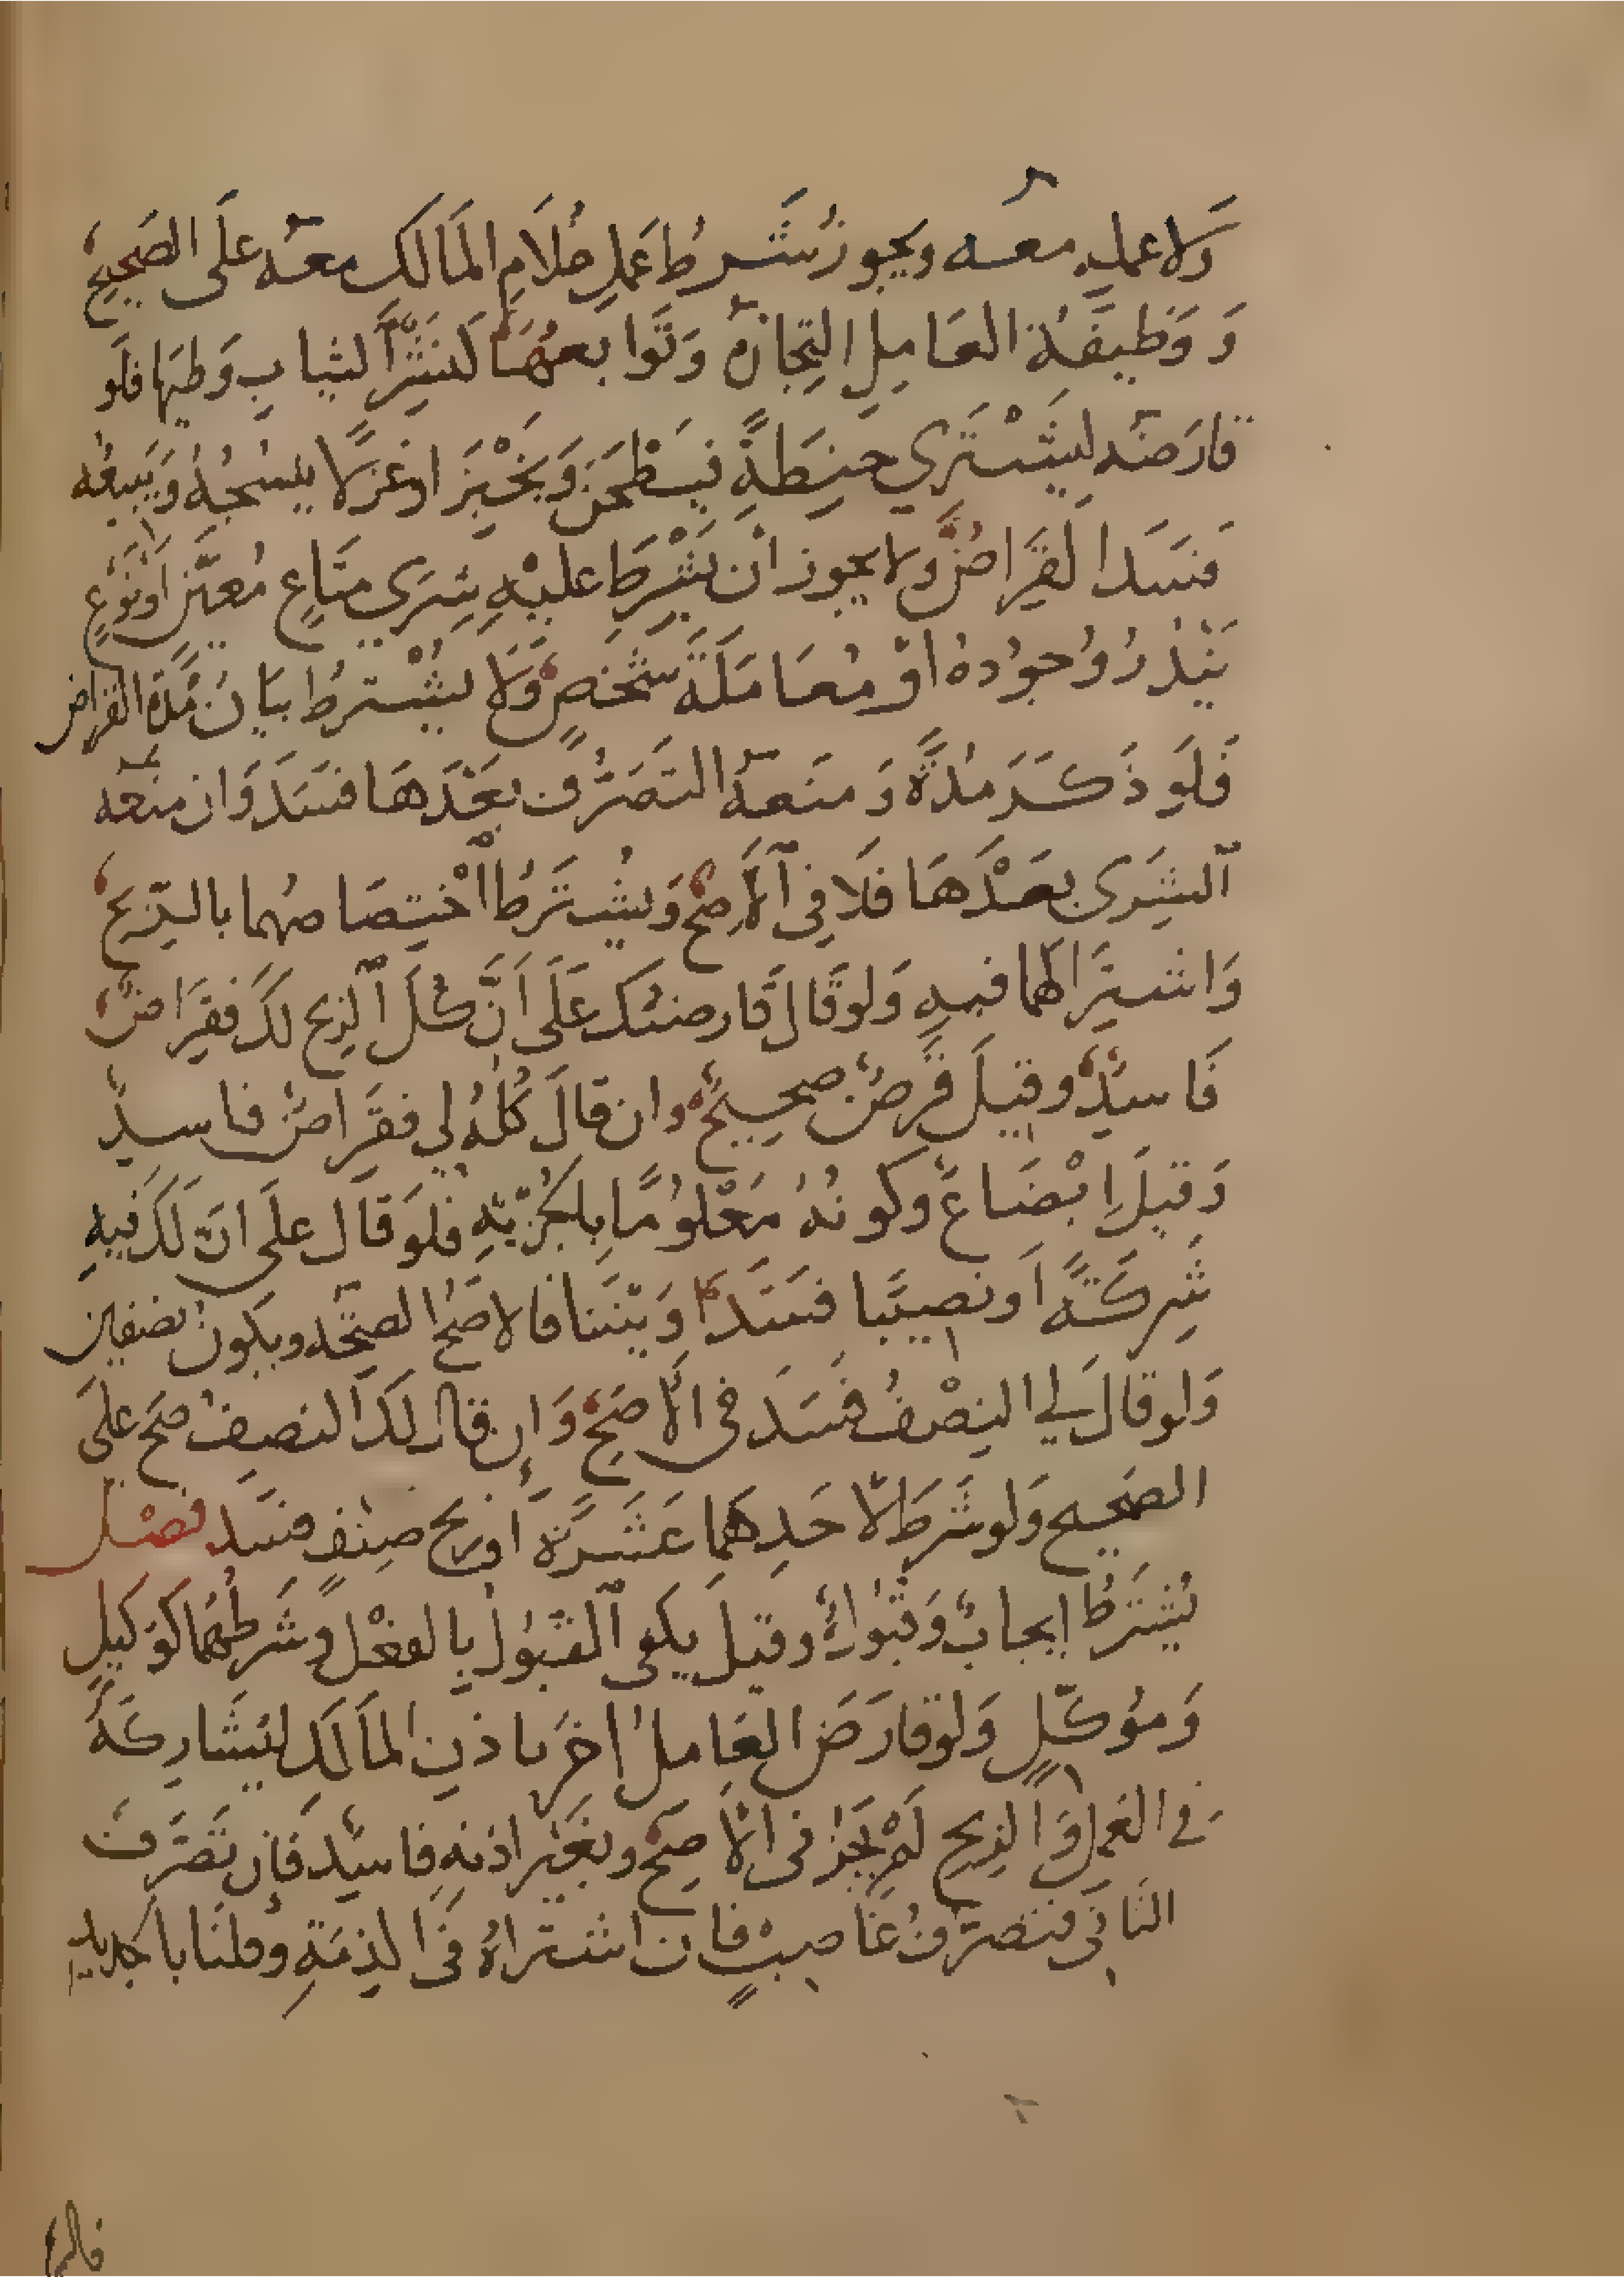 ولا عمله معه ويجوز شرط عمل غلام المالك معه على الصحيح
ووظيفة العامل التجارة وتوابعها كنشر الثياب وطيها فلو
قارضه ليشتري حنطة فيطحن ويخبز او غزلا ينسجه ويبيعه
فسد القراض ولا يجوز ان يشرط عليه شرى متاع معين او نوع
يندر وجوده او معاملة شخص ولا يشترط بيان مدة القراض
فلو ذكر مدة ومنعه التصرف بعدها فسد وان منعه
الشرى بعدها فلا في الاصح ويشترط اختصاصهما بالربح
واشتراكهما فيه ولو قال قارضتك على أن كل الربح لك فقراض
فاسد وقيل قرض صحيح وان قال كله لي فقراض فاسد
وقيل إبضاع وكونه معلوما بالجزئية فلو قال على ان لك فيه
شركة او نصيبا فسد او بيننا فالاصح الصحه ويكون نصفين
ولو قال لي النصف فسد في الاصح وإن قال لك النصف صح على
الصحيح ولو شرط لاحدهما عشرة أو ربح صنف فسد فصل
يشترط إيجاب وقبول وقيل يكفي القبول بالفعل وشرطهما كوكيل
وموكل ولو قارض العامل اخر باذن المالك ليشاركه
في العمل والربح لم يجز في الاصح وبغير اذنه فاسد فإن تصرف
الثاني فتصرف غاصب فان اشترى في الذمة وقلنا بالجديد